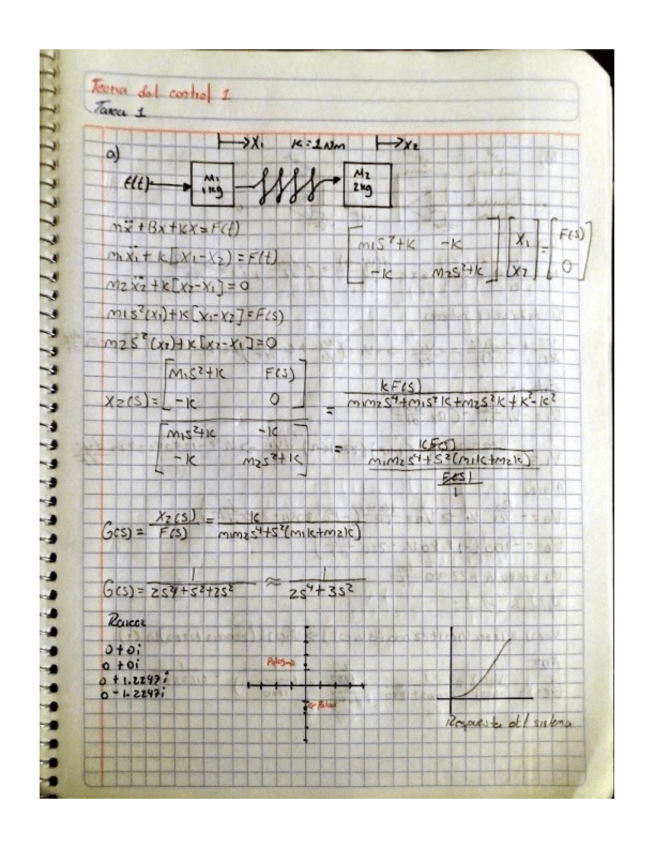 Teoria del control 1
Tarea 1
a)
→X₁ K=1 Nm →X₂
f(t) M₁ 1kg M₂ 2kg
mẍ + Bẋ + KX = F(t)
m₁ẍ₁ + K[X₁-X₂) = F(t)
m₂ẍ₂ + K[X₂-X₁] = 0
m₁s²(X₁) + K[X₁-X₂] = F(s)
m₂s²(X₂) + K[X₂-X₁] = 0
[m₁s²+K -K] [X₁] = [F(s)]
[-K m₂s²+K] [X₂] [0]
X₂(s) = [M₁s²+K F(s)]
[-K 0]
[m₁s²+K -K]
[-K m₂s²+K]
= KF(s) / m₁m₂s⁴+m₁s²K+m₂s²K+K²-K²
= KF(s) / m₁m₂s⁴+s²(m₁K+m₂K)
F(s) / 1
G(s) = X₂(s) / F(s) = K / m₁m₂s⁴+s²(m₁K+m₂K]
G(s) = 1 / 2s⁴+s²+2s² ≈ 1 / 2s⁴+3s²
Raices
0+0i
0+0i
0+1.2247i
0-1.2247i
Polos
Respuesta del sistema